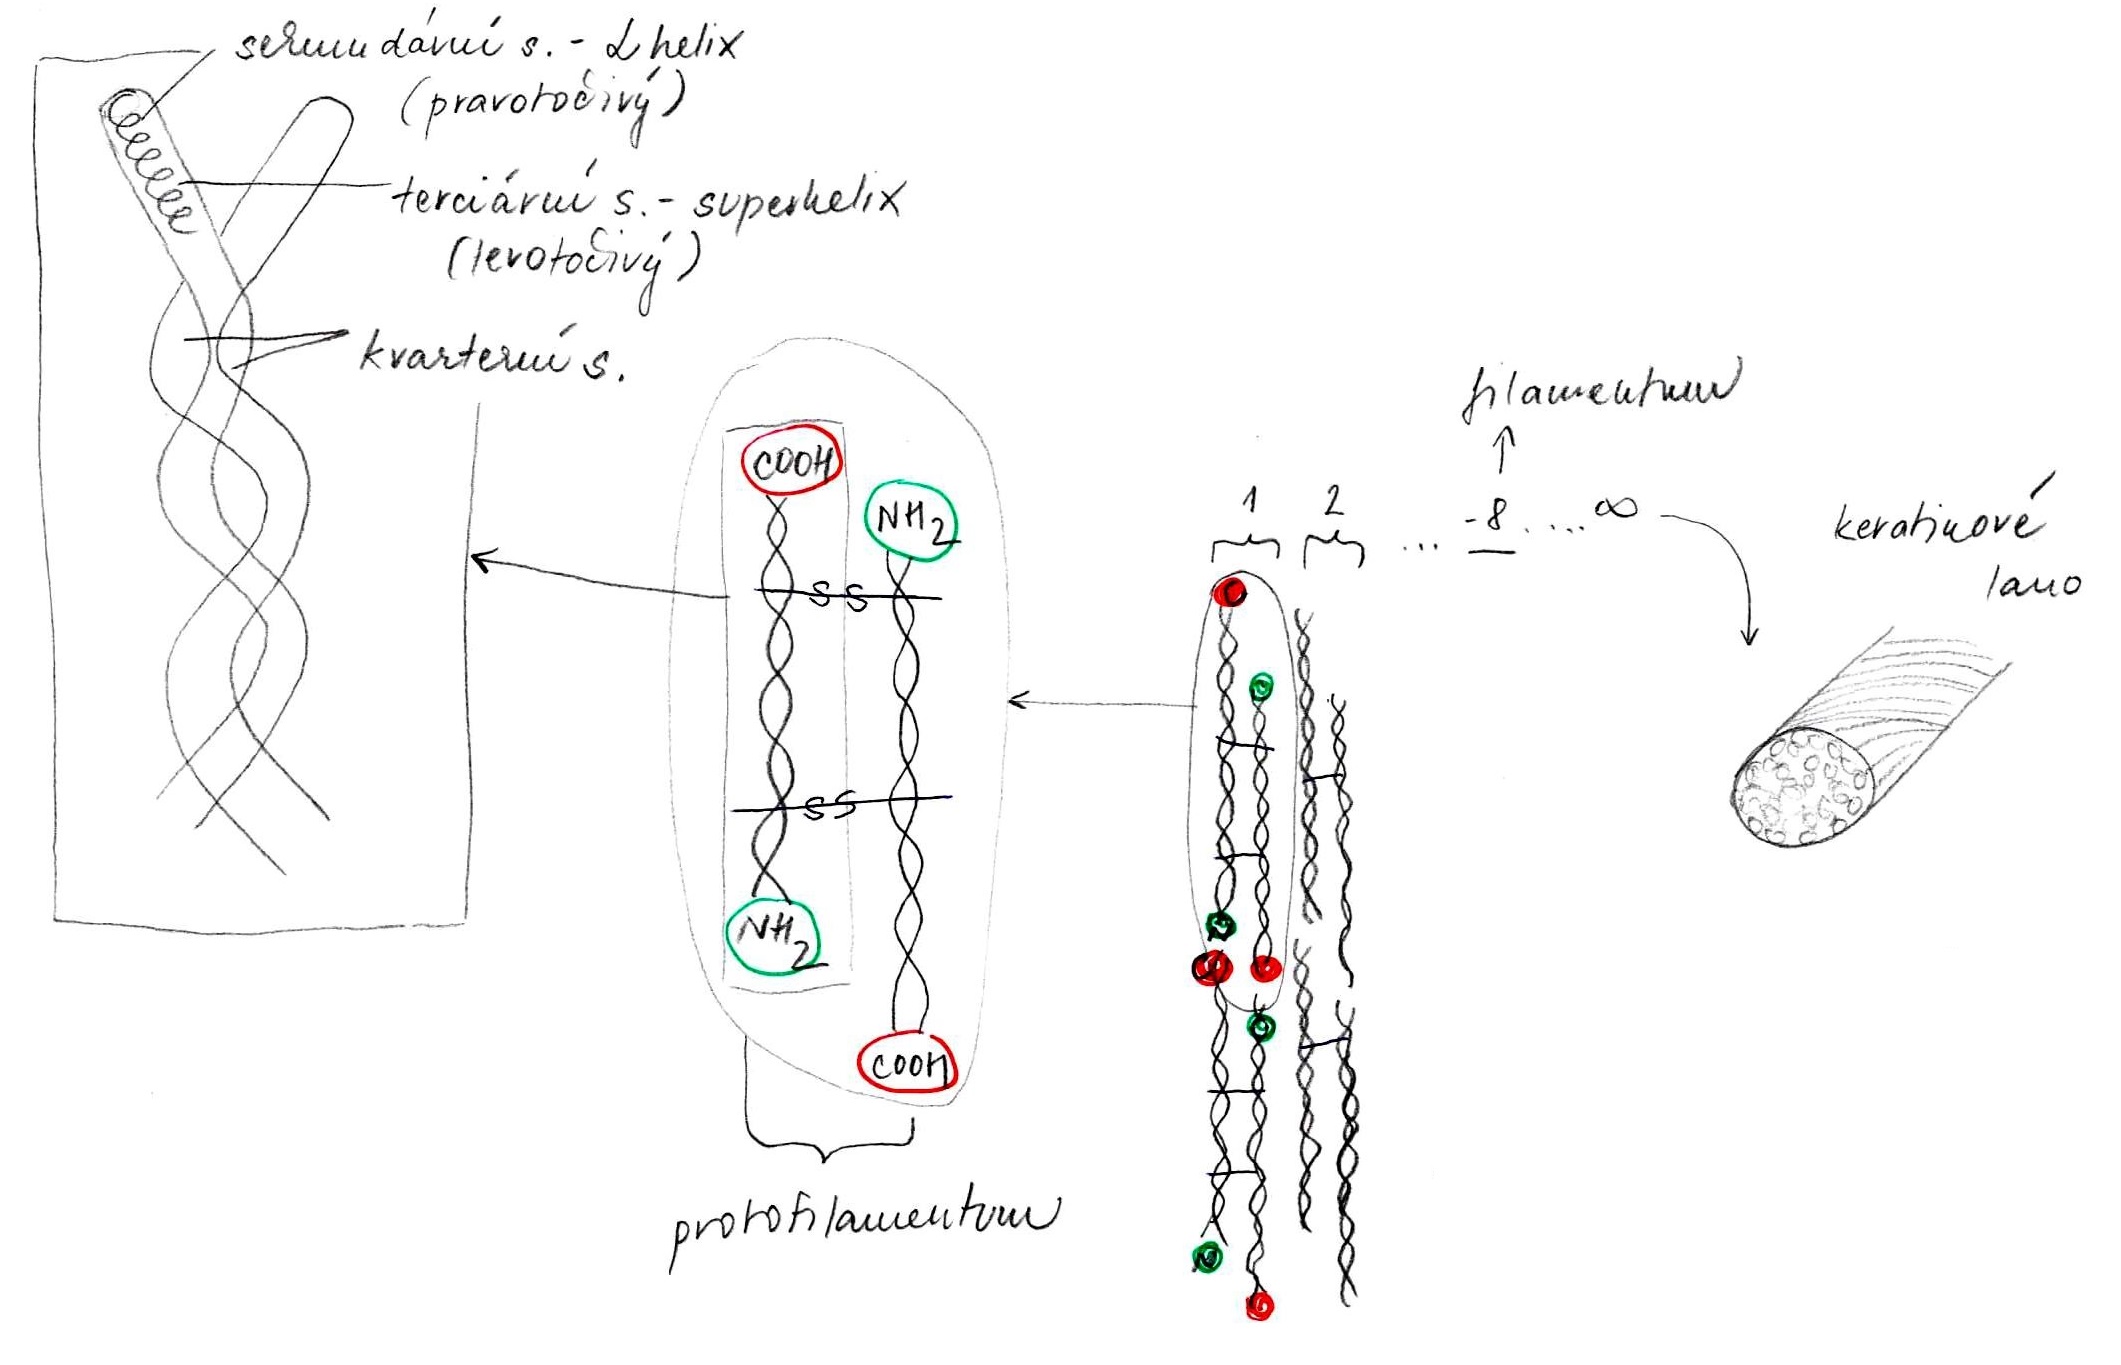 sekundární s. - α helix
(pravotočivý)
terciární s. - superhelix
(levotočivý)
kvarterní s.
COOH
NH2
S S
S S
NH2
COOH
protofilamentum
filamentum
1 2 ... -8 .... ∞
C
N
N
keratinové
lano